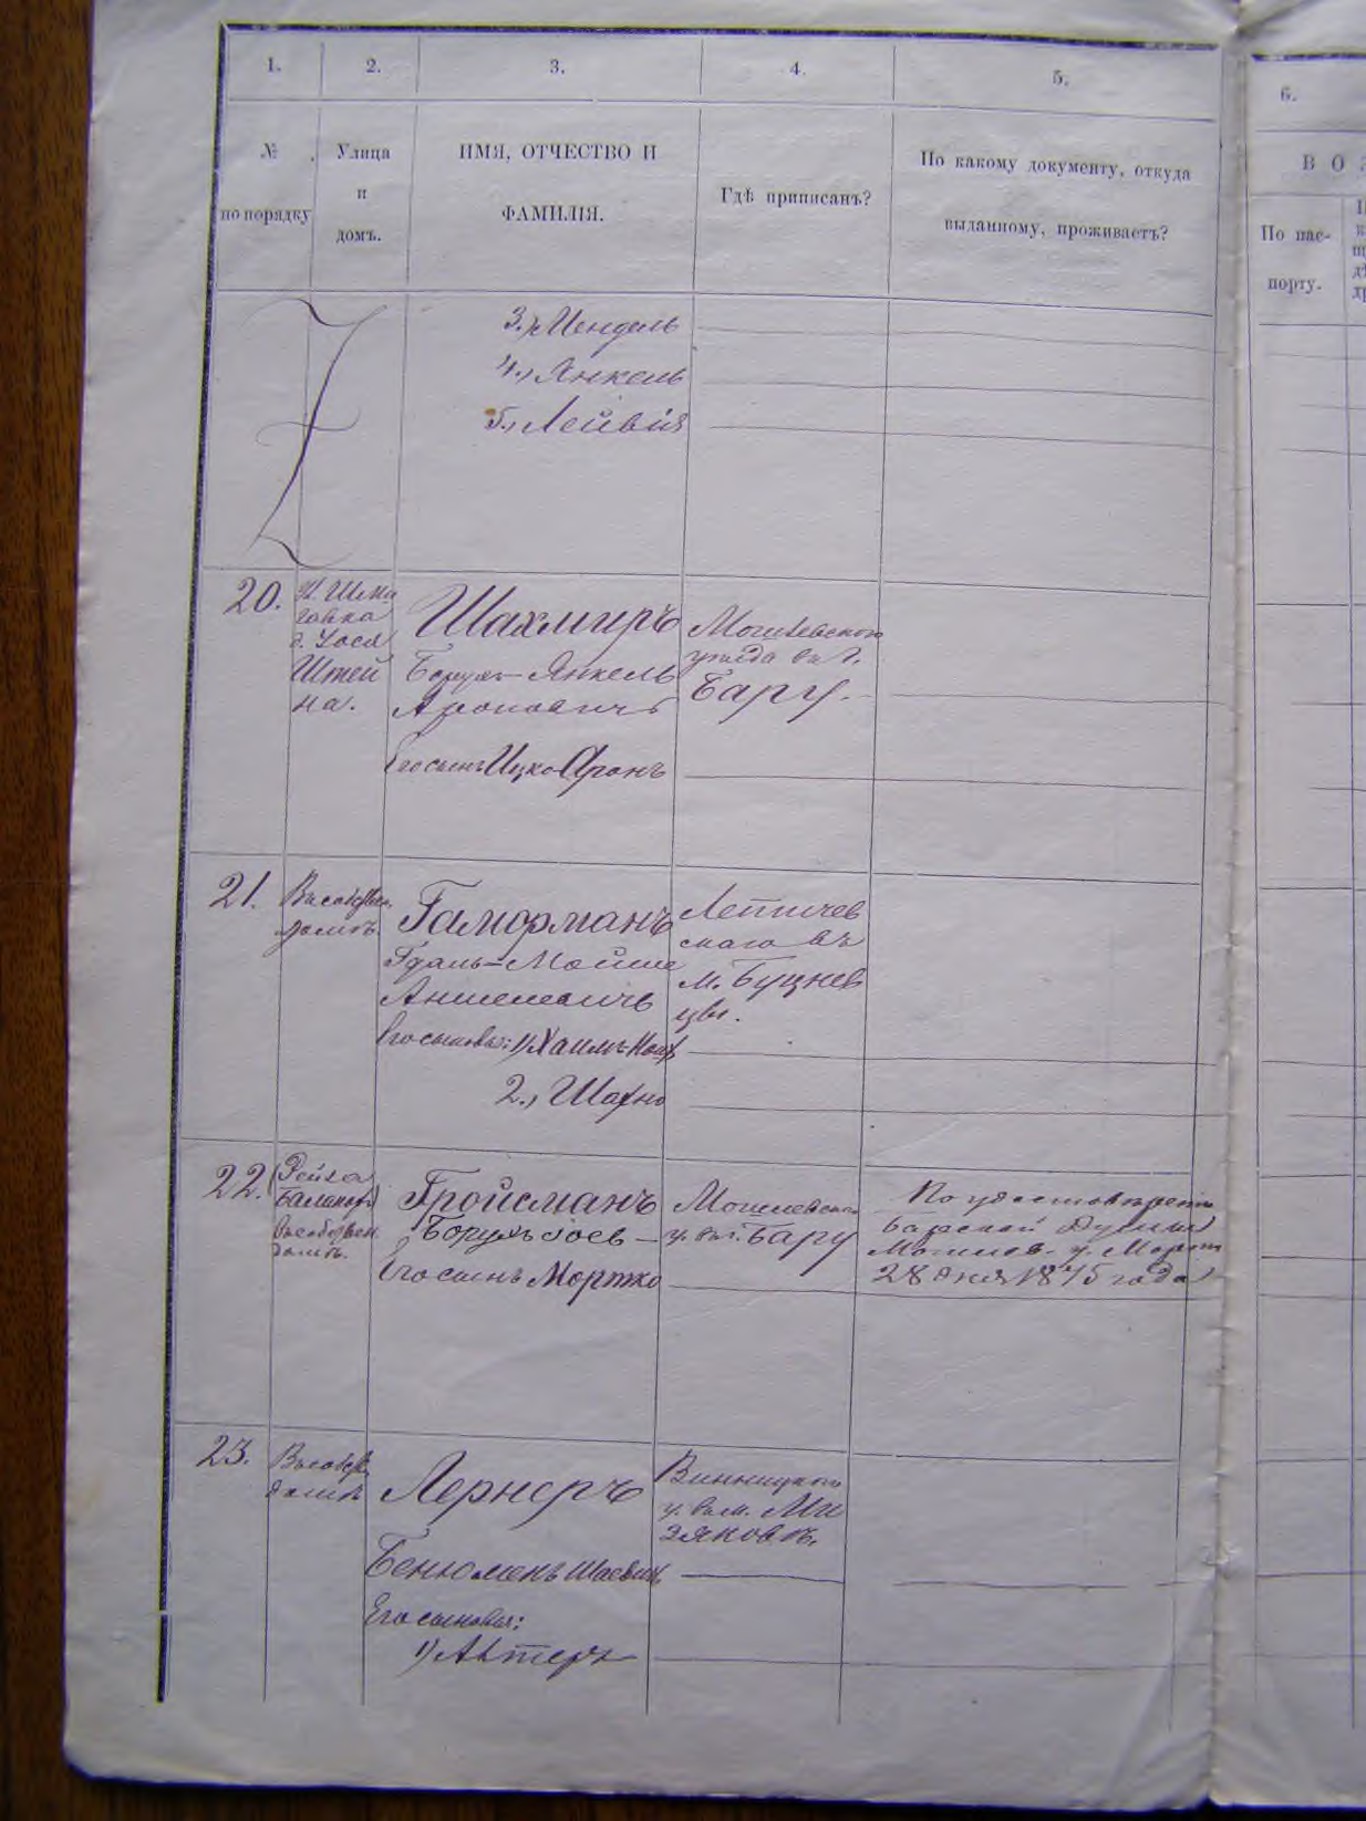 1.
2.
3.
4.
5.
6.
№
по порядку
Улица
и
домъ.
ИМЯ, ОТЧЕСТВО И
ФАМИЛІЯ.
Гдѣ приписанъ?
По какому документу, откуда
выданному, проживаетъ?
ВОЗ
По пас-
порту.
3., Мендель
4., Янкель
5., Лейвія
20.
д. Іося
Штей
на.
Шахмиръ
Борухъ-Янкель
Ароновичъ
Его сынъ Ицко-Аронъ
Могилевского
уѣзда въ г.
Бару.
21.
Въ собствен.
домѣ.
Гаморманъ
Гдаль-Мойше
Аншелевичъ
Его сыновья: 1) Хаимъ-
2., Шахно
Летичев
скаго въ
м. Буцнев
цы.
22.
Рейза
въ собствен.
домѣ.
Гройсманъ
Борухъ
Его сынъ Мортко
Могилевского
у. въ г. Бару
По удостовѣренію
Барской Думы
Могилев. у. Марта
28 дня 1875 года
23.
Въ собств.
домѣ
Лернеръ
Бенюменъ Шаевич.
Его сыновья:
1) Алтеръ
Винницкого
у. въ м. Ми
зяковѣ.